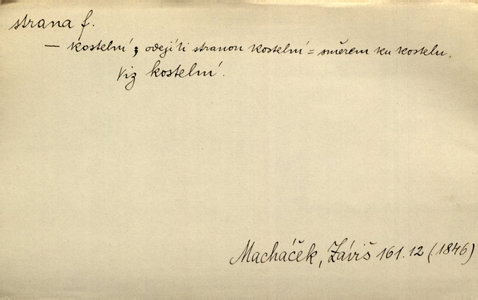 strana f.
— kostelní; odejíti stranou kostelní = směrem ku kostelu.
Viz kostelní.
Macháček, Záviš 161.12 (1846)